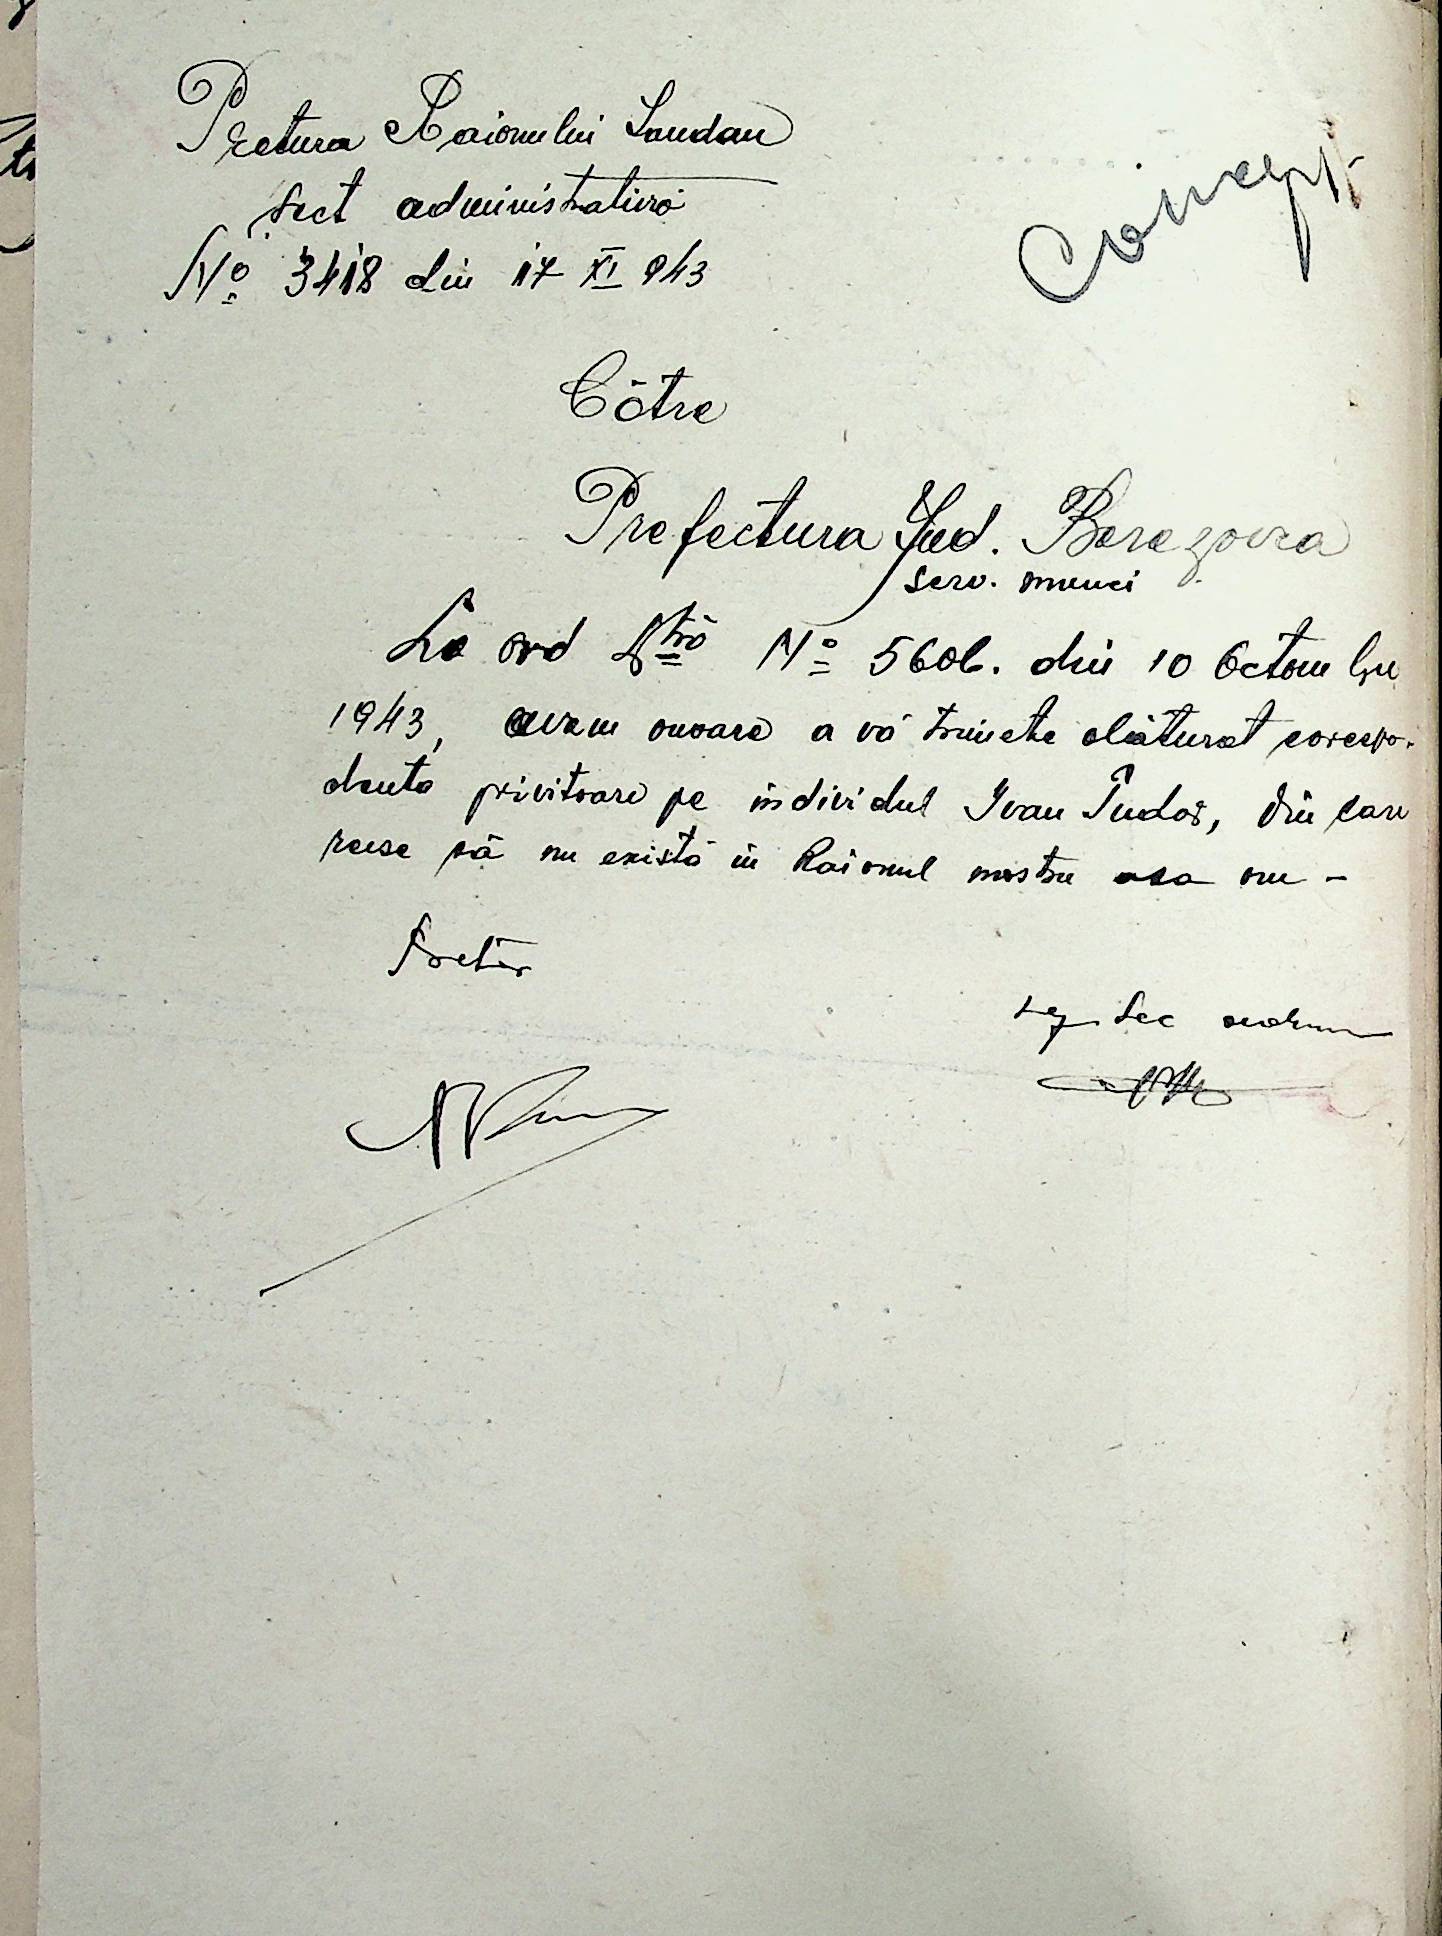 Pretura Raionului Landau
Concept
sect administrativă
No 3418 din 17 XI 943
Cătră
Prefectura Jud. Berezovca
serv. munci
La ord Dtră No 5606. din 10 Octombre
1943, avem onoare a vă trimete alăturat corespo-
denta privitoare pe individul Ivan Tudos, din care
reese că nu există în Raionul nostru asa om -
Pretor
Seq Sec adm